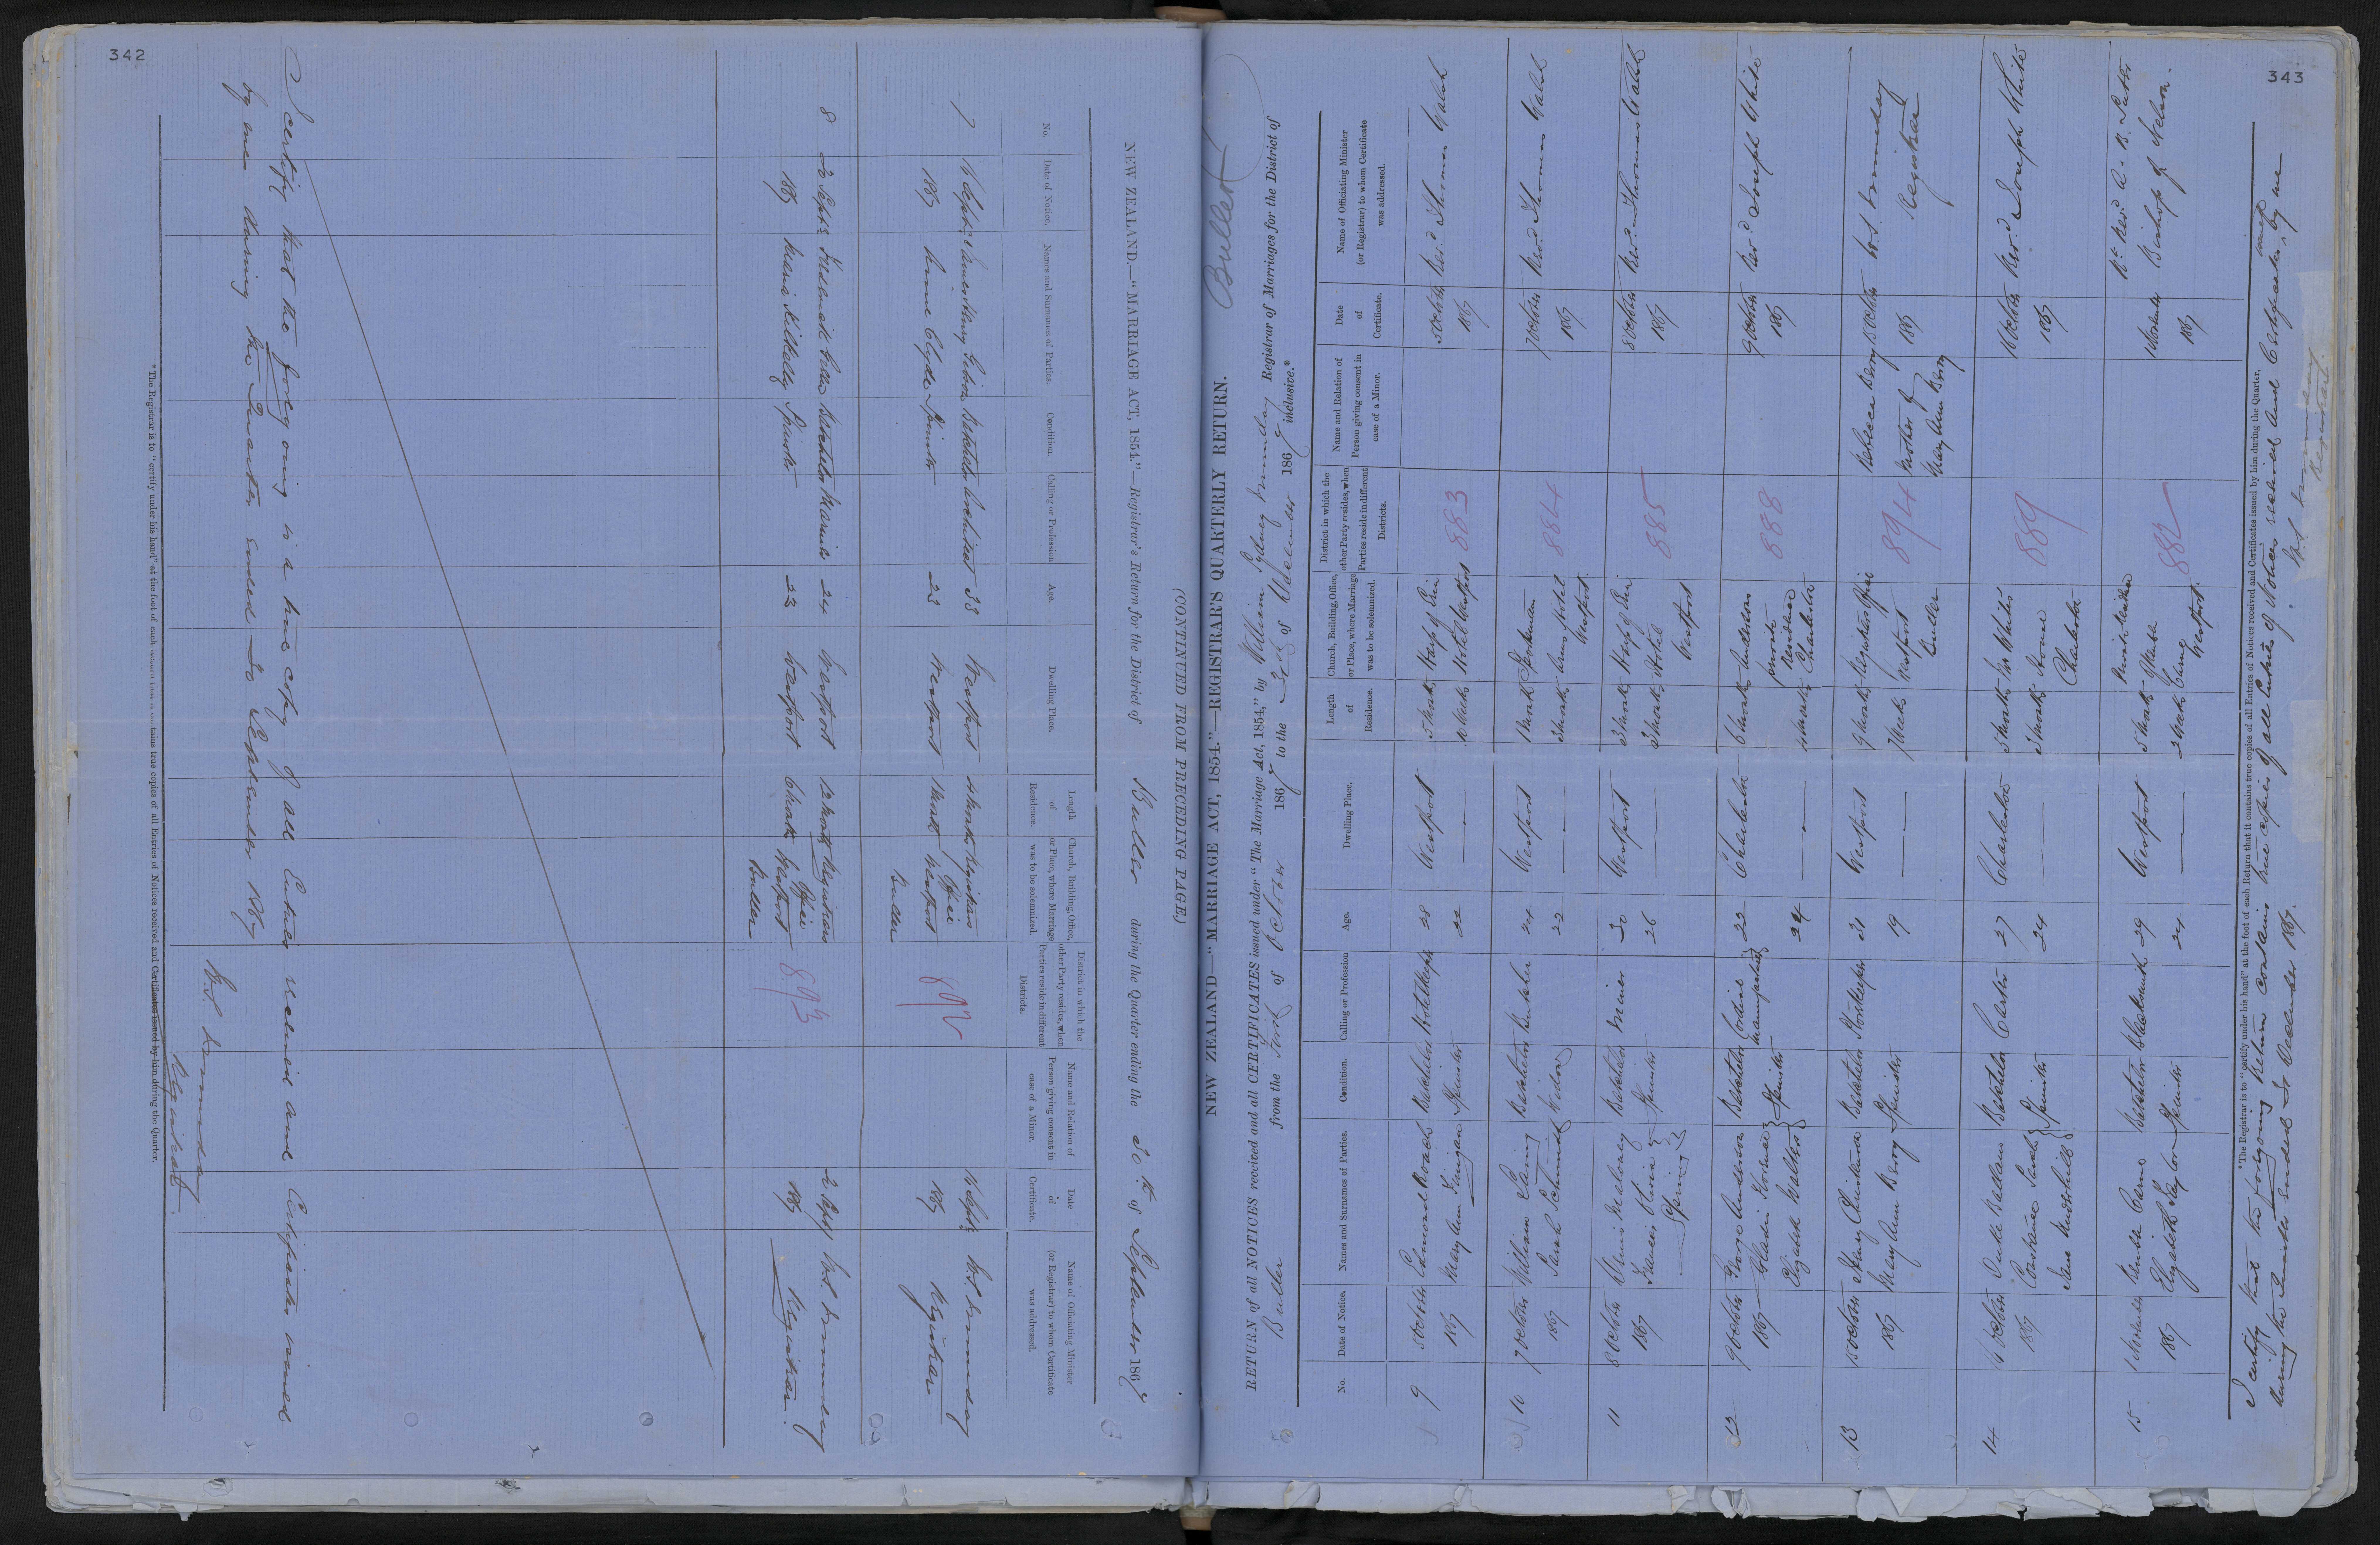 342
(CONTINUED FROM PRECEDING PAGE.)
NEW ZEALAND.—"MARRIAGE ACT, 1854."—Registrar's Return for the District of Buller during the Quarter ending the 30th of September 1867
No.
Date of Notice.
Names and Surnames of Parties.
Condition.
Calling or Profession
Age.
Dwelling Place.
Length of Residence.
Church, Building, Office, or Place, where Marriage was to be solemnized.
District in which the other Party resides, when Parties reside in different Districts.
Name and Relation of Person giving consent in case of a Minor.
Date of Certificate.
Name of Officiating Minister (or Registrar) to whom Certificate was addressed.
7 16 Septr Henry Bachelor Architect 33 Westport 4 Months Registrars 16 Septr W. S. Munday
1867 Clyde Spinster 23 Westport Office Westport Buller 892 1867 Registrar
8 Bachelor 24 Westport 12 Months Registrars W. S. Munday
1867 Maria Spinster 23 Westport 6 Months Office Westport Buller 893 1867 Registrar.
I certify that the foregoing is a true copy of all Entries received and Certificates issued
by me during the Quarter ended 30 September 1867
W. S. Munday
Registrar
*The Registrar is to "certify under his hand" at the foot of each Return that it contains true copies of all Entries of Notices received and Certificates issued by him during the Quarter.
343
Buller
NEW ZEALAND—"MARRIAGE ACT, 1854."—REGISTRAR'S QUARTERLY RETURN.
RETURN of all NOTICES received and all CERTIFICATES issued under "The Marriage Act, 1854," by William Sydney Munday Registrar of Marriages for the District of
Buller from the First of October 1867 to the 31st of December 1867 inclusive.*
No.
Date of Notice.
Names and Surnames of Parties.
Condition.
Calling or Profession
Age.
Dwelling Place.
Length of Residence.
Church, Building, Office, or Place, where Marriage was to be solemnized.
District in which the other Party resides, when Parties reside in different Districts.
Name and Relation of Person giving consent in case of a Minor.
Date of Certificate.
Name of Officiating Minister (or Registrar) to whom Certificate was addressed.
9 5 October Edmond Roach Bachelor Hotelkeeper 28 Westport 5 Months Harp of Erin 883 5 October Revd. Thomas Walsh
1867 Mary Ann Finigan Spinster 22 Weeks Hotel Westport 1867
10 7 October William Laing Bachelor Butcher 24 Westport Months Sportsman 884 7 October Revd. Thomas Walsh
1867 Sarah Schmidt Widow 22 Months Arms Hotel Westport. 1867
11 8 October Dennis Maloney Bachelor Miner 30 Westport 3 Months Harp of Erin 885 8 October Revd. Thomas Walsh
1867 Spring Spinster 26 3 Months Hotel Westport 1867
12 9 October George Anderson Bachelor Cordial manufacturer 22 Charleston 6 Months Andersons 888 9 October Revd. Joseph White
1867 Elizabeth Walton Spinster 24 private residence Charleston 1867
13 15 October Henry Bachelor Storekeeper 31 Westport 9 Months Registrars Office 894 Rebecca Berry 15 October W. S. Munday
1867 Mary Ann Berry Spinster 19 7 Weeks Westport Buller Mother of Mary Ann Berry 1867 Registrar
14 16 October Bachelor Carter 27 Charleston 5 Months Mr Whites 889 16 October Revd. Joseph White
1867 Constance Sarah Jane Spinster 24 3 Months House Charleston 1867
15 1 November Carne Bachelor Blacksmith 29 Westport 5 Months 882 1 November Rt. Revd. A. B. Suter
1867 Elizabeth Taylor Spinster 24 Weeks Carne Westport. 1867 Bishop of Nelson.
*The Registrar is to "certify under his hand" at the foot of each Return that it contains true copies of all Entries of Notices received and Certificates issued by him during the Quarter.
I certify that the foregoing Return contains true copies of all Entries of Notices received and Certificates issued by me
during the Quarter ended 31 December 1867.
W. S. Munday
Registrar.